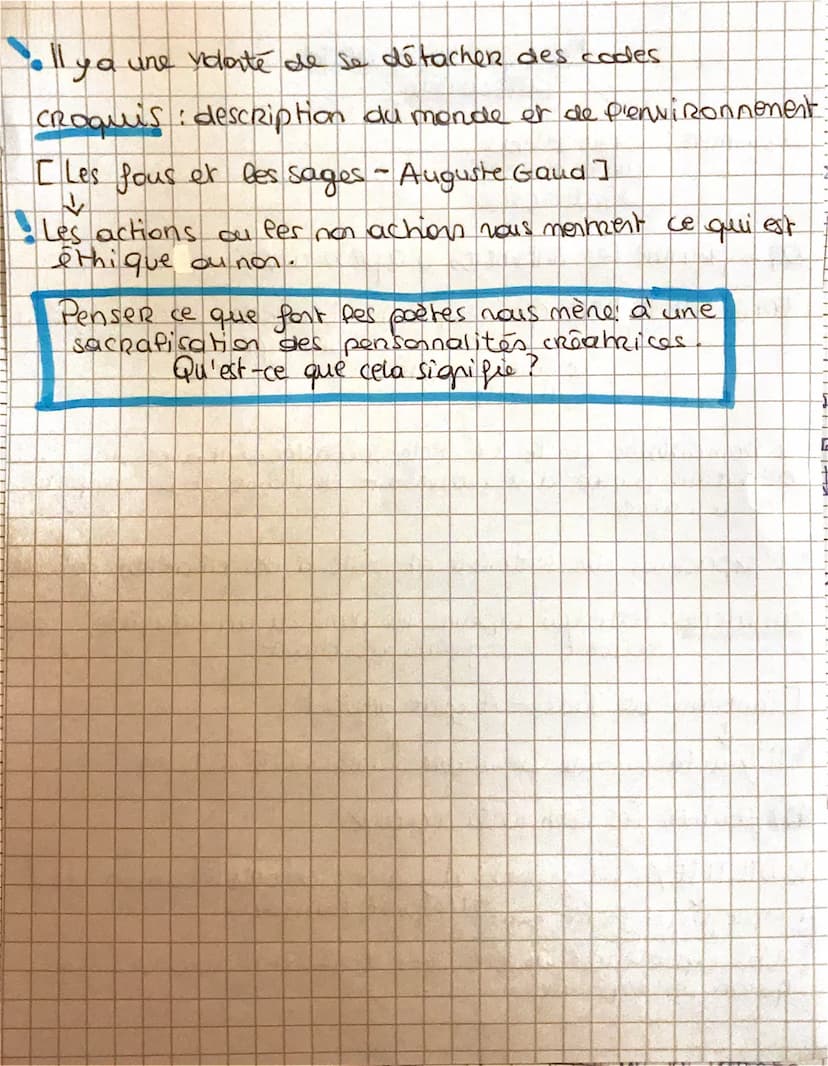 ! Il y a une volonté de se détacher des codes
croquis : description du monde et de l'environnement
[ Les fous et les sages - Auguste Gaud ]
↓
! Les actions ou les non action nous montrent ce qui est
éthique ou non.
Penser ce que font les poètes nous mène à une
sacralisation des personnalités créatrices.
Qu'est-ce que cela signifie ?